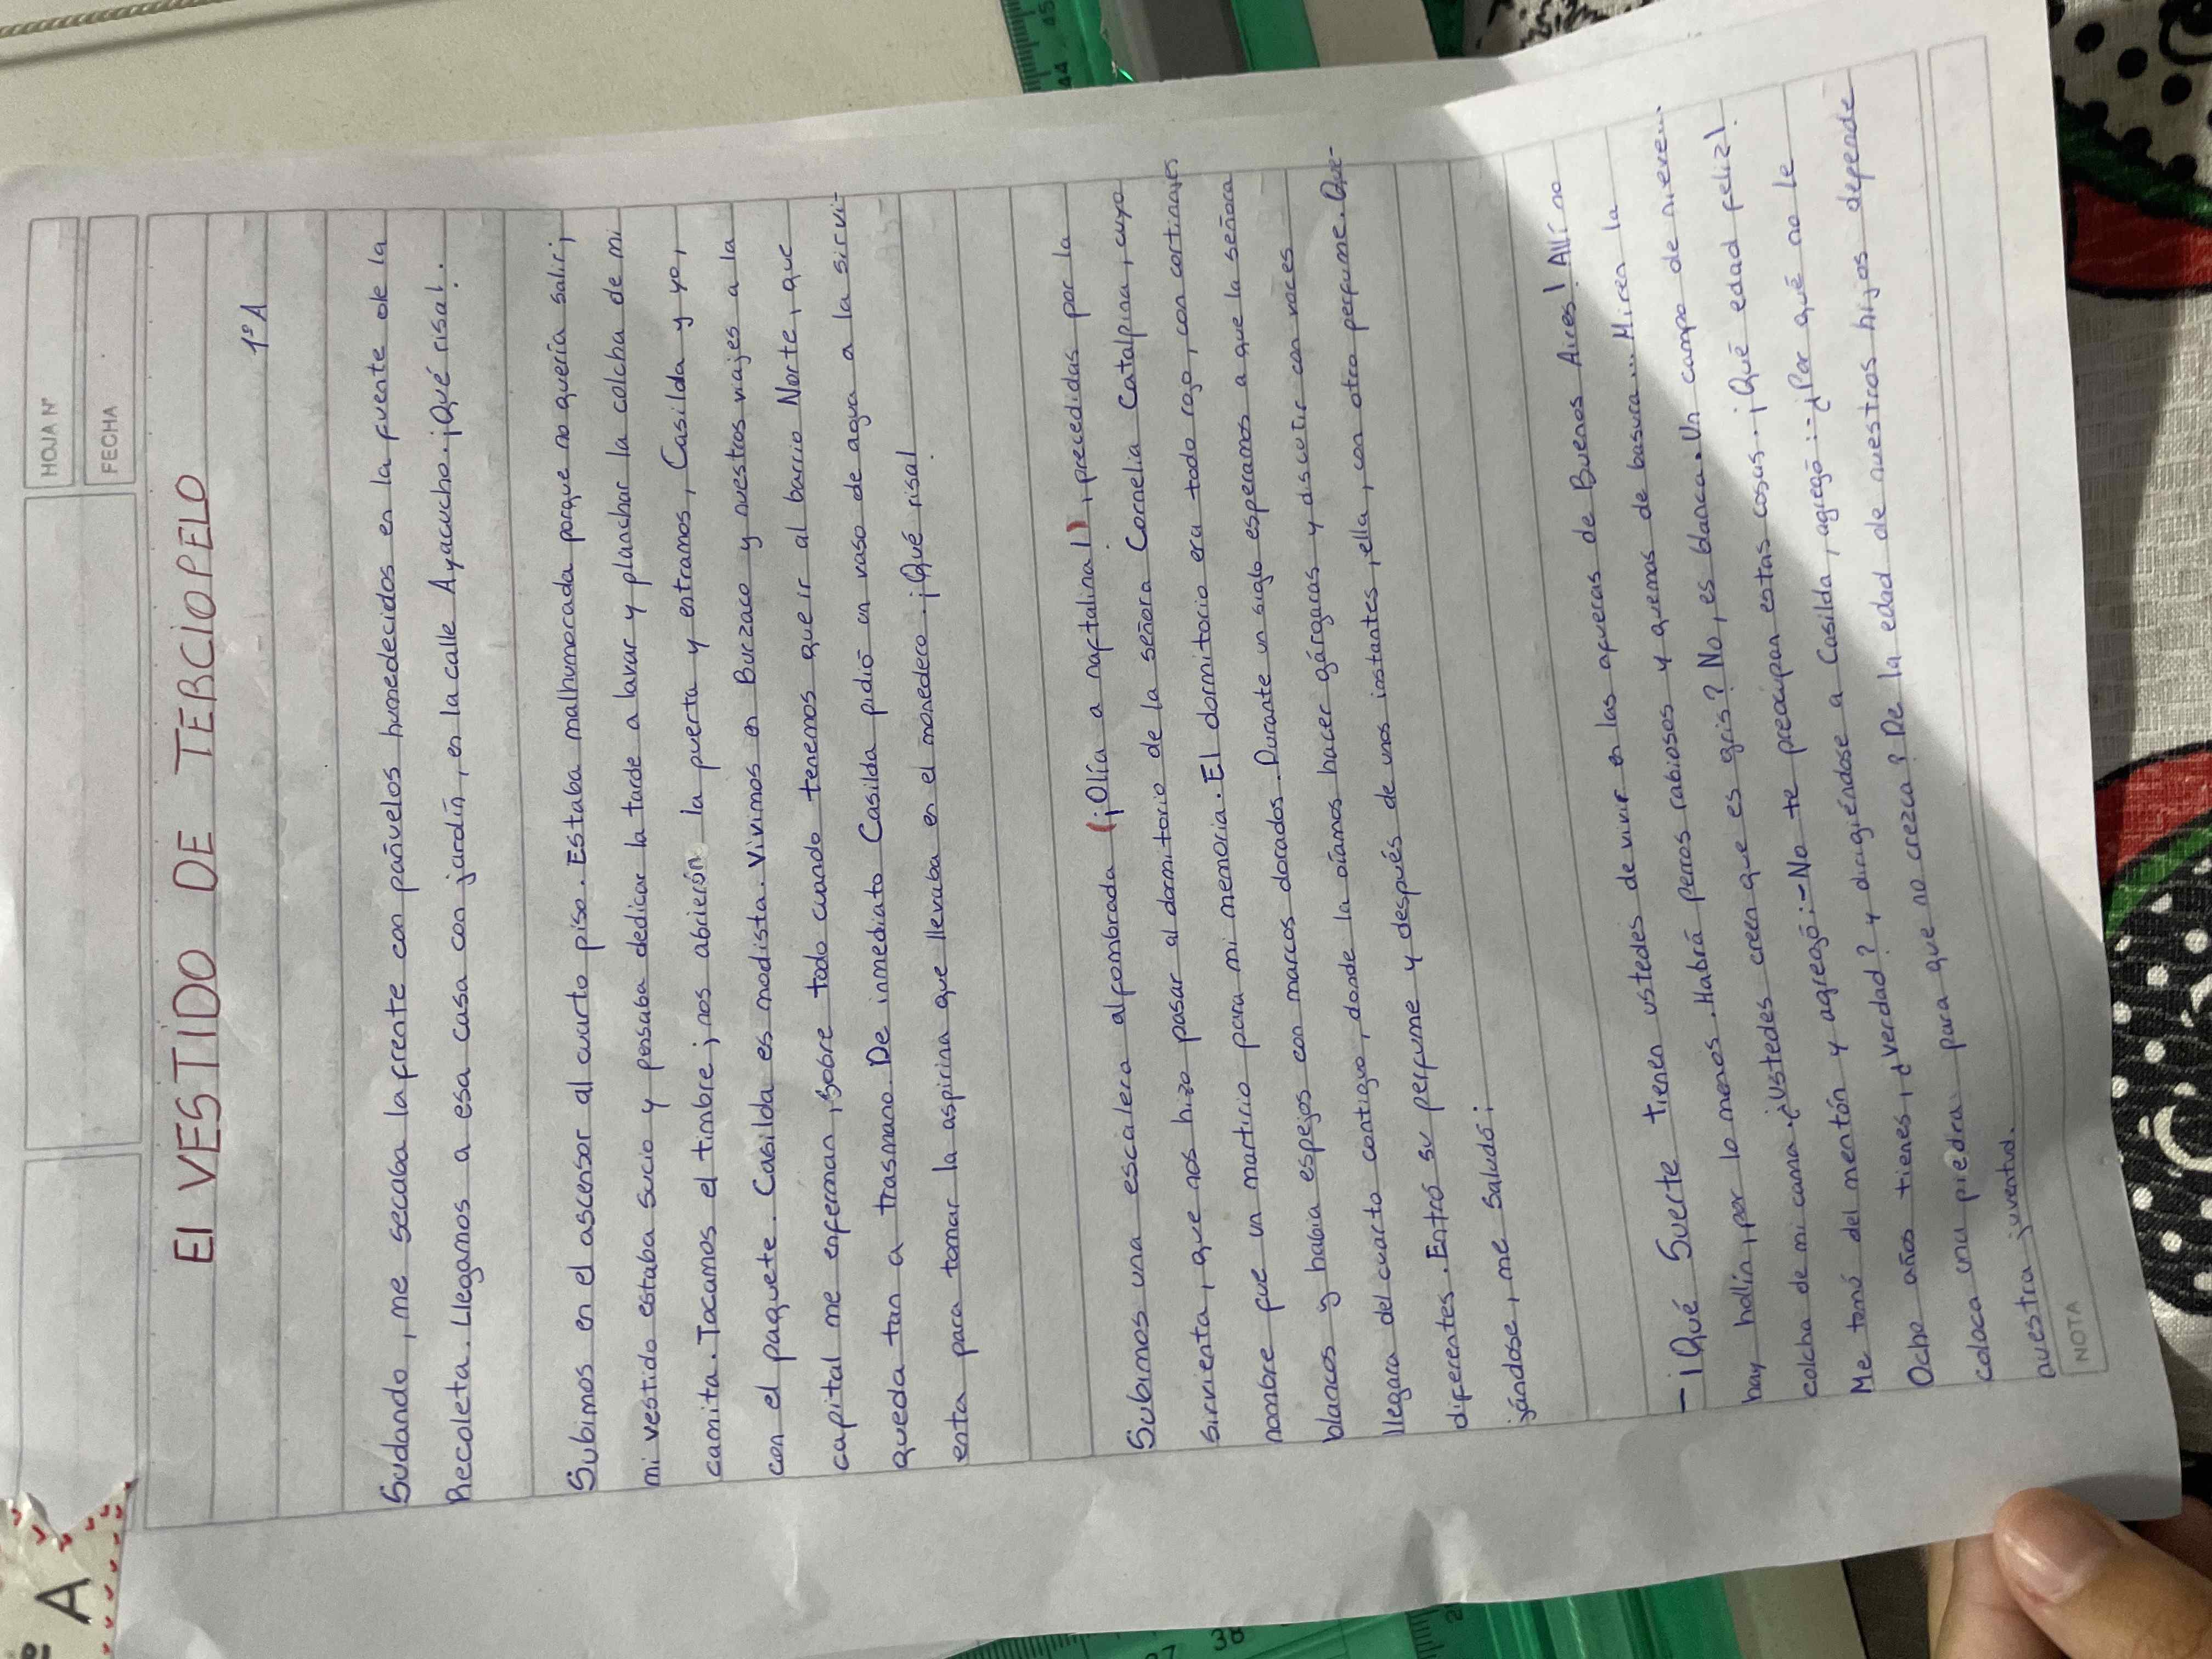 HOJA Nº
FECHA
El VESTIDO DE TERCIOPELO
1º A
Sudando, me secaba la frente con pañuelos humedecidos en la fuente de la
Recoleta. Llegamos a esa casa con jardín, en la calle Ayacucho. ¡Qué risa!.
Subimos en el ascensor al cuarto piso. Estaba malhumorada porque no quería salir;
mi vestido estaba sucio y pensaba dedicar la tarde a lavar y planchar la colcha de mi
camita. Tocamos el timbre; nos abrierón la puerta y entramos, Casilda y yo,
con el paquete. Casilda es modista. Vivimos en Burzaco y nuestros viajes a la
capital me enferman, sobre todo cuando tenemos que ir al barrio Norte, que
queda tan a trasmano. De inmediato Casilda pidió un vaso de agua a la sirvi-
enta para tomar la aspirina que llevaba en el monedero. ¡Qué risa!
Subimos una escalera alfombrada (¡Olía a naftalina!), precedidas por la
sirvienta, que nos hizo pasar al dormitorio de la señora Cornelia Catalpina, cuyo
nombre fue un martirio para mi memoria. El dormitorio era todo rojo, con cortinajes
blancos y había espejos con marcos dorados. Durante un siglo esperamos a que la señora
llegara del cuarto contiguo, donde la oíamos hacer gárgaras y discutir con voces
diferentes. Entró su perfume y después de unos instantes, ella, con otro perfume. Que-
jándose, me saludó:
-¡Qué Suerte tienen ustedes de vivir en las afueras de Buenos Aires! Allí no
hay hollín, por lo menos. Habrá perros rabiosos y quemas de basura... Miren la
colcha de mi cama ¿Ustedes creen que es gris? No, es blanca. Un campo de nieve.
Me tomó del mentón y agregó:-No te preocupan estas cosas. ¡Qué edad feliz!
Ocho años tienes, ¿verdad? y dirigiéndose a Casilda, agregó:-¿Por qué no le
coloca una piedra para que no crezca? De la edad de nuestros hijos depende
nuestra juventud.
NOTA
A
45
44
38